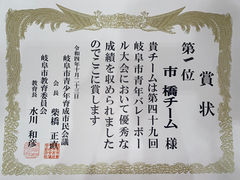 賞状
第一位
市橋チーム 様
貴チームは第四十九回
岐阜市青年バレーボー
ル大会において優秀な
成績を収められました
のでここに賞します
令和四年十月二十三日
岐阜市青少年育成市民会議
会長 柴橋 正直
岐阜市教育委員会
教育長 水川 和彦